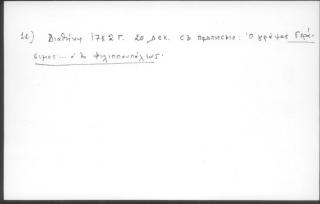 12) Διαθήκη 1782 г. 20 дек. съ прописью: ὁ γράψας Γερά-
σιμος ... ὁ ἐκ Φιλιππουπόλεως.